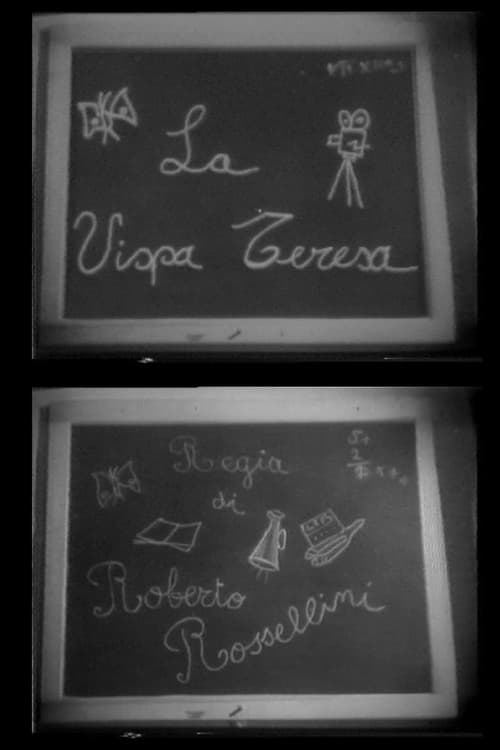 La
Vispa Teresa
Regia
di
Roberto
Rossellini